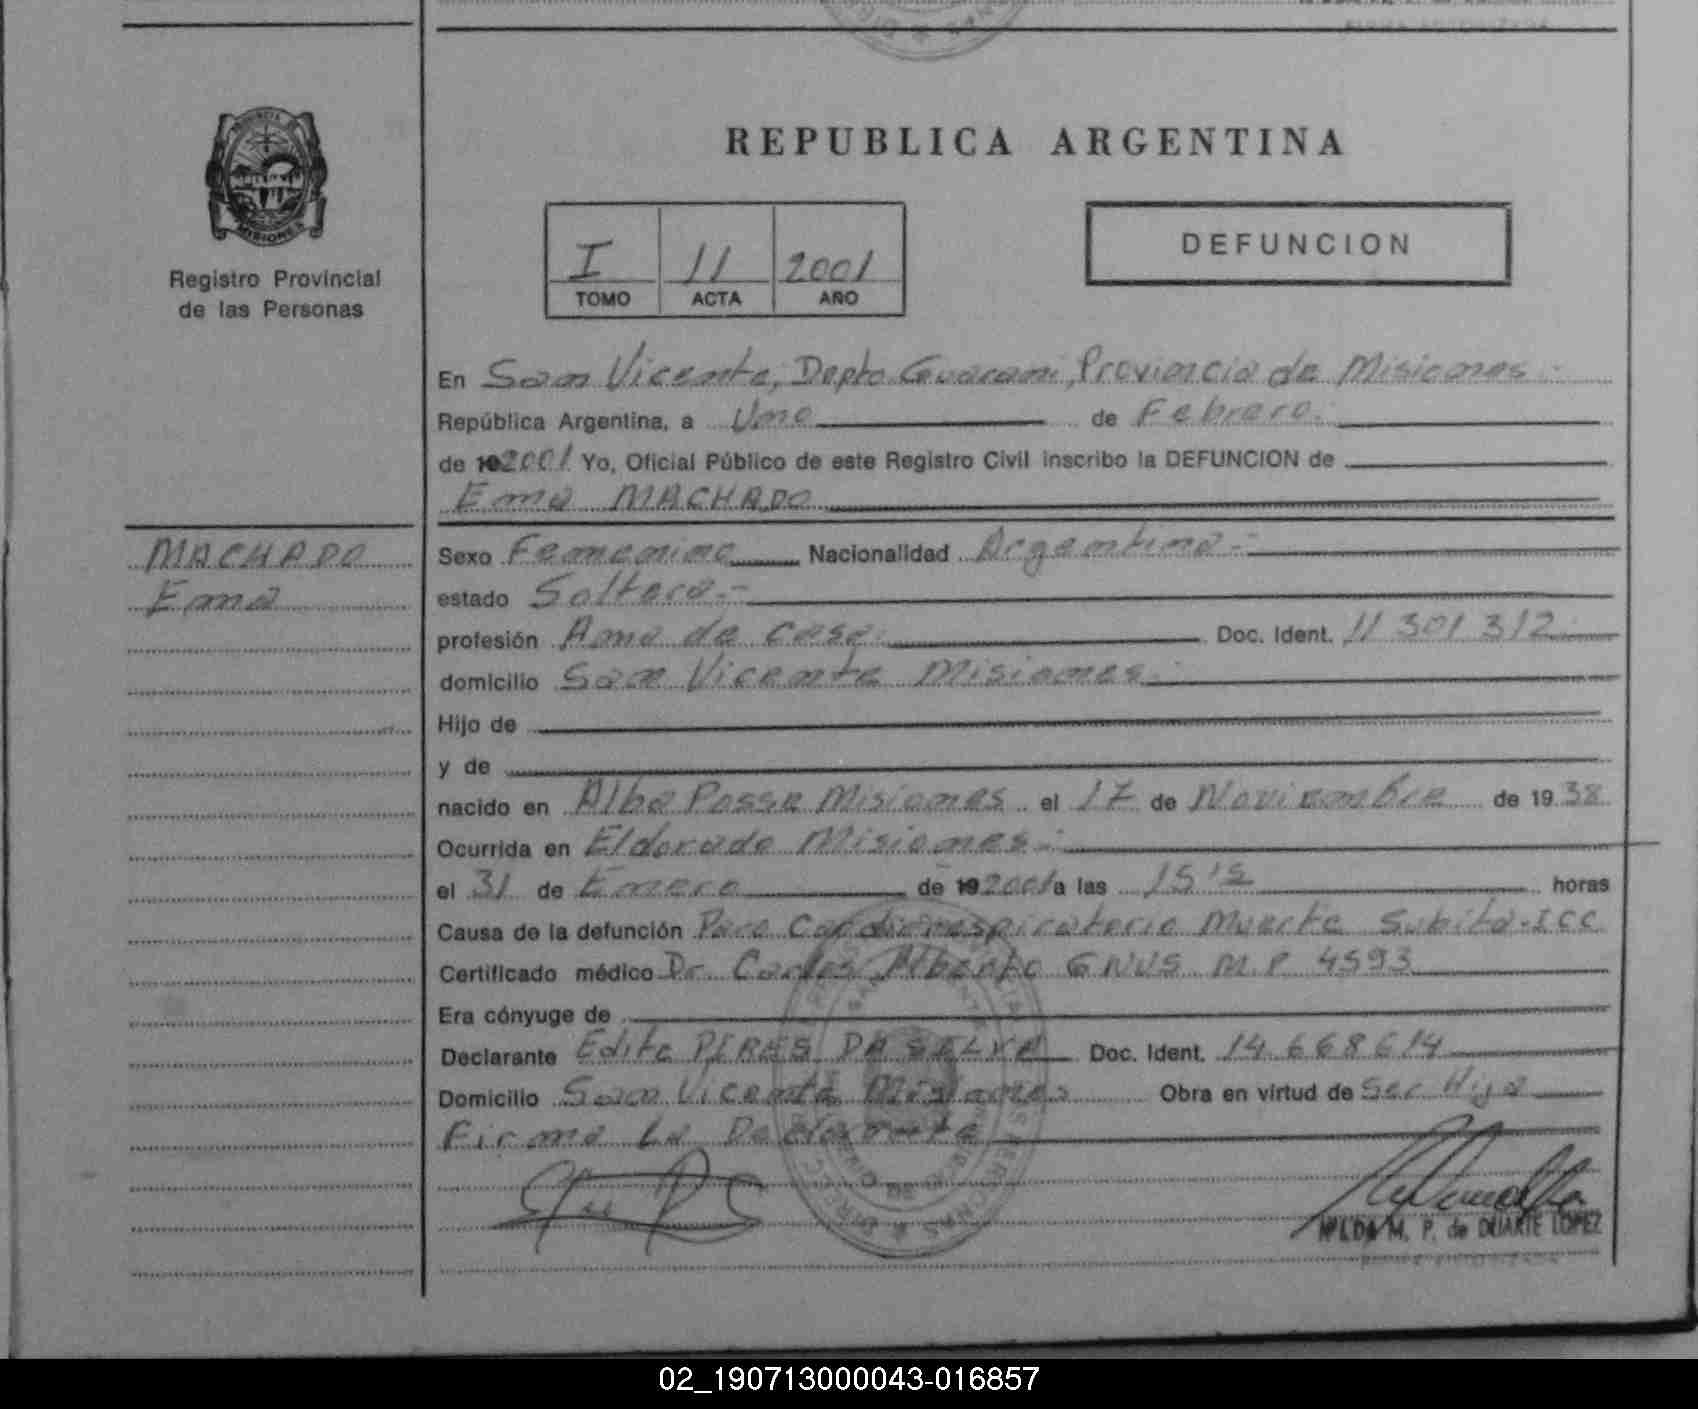 REPUBLICA ARGENTINA
MISIONES
Registro Provincial
de las Personas
I 11 2001
TOMO ACTA AÑO
DEFUNCION
En San Vicente, Depto Guarani, Provincia de Misiones.-
República Argentina, a Uno de Febrero.
de 192001 Yo, Oficial Público de este Registro Civil inscribo la DEFUNCION de
Ema MACHADO
MACHADO
Ema
Sexo Femenino Nacionalidad Argentina.-
estado Soltera.-
profesión Ama de casa. Doc. Ident. 11 301 312
domicilio San Vicente Misiones.-
Hijo de
y de
nacido en Alba Posse Misiones el 17 de Noviembre de 1938
Ocurrida en Eldorado Misiones.-
el 31 de Enero de 192001 a las 15'5 horas
Causa de la defunción Paro Cardiorespiratorio Muerte Subita-ICC
Certificado médico Dr. Carlos Alberto GNUS M.P 4593
Era cónyuge de
Declarante Edite PIRES DA SELVA Doc. Ident. 14.668614
Domicilio San Vicente Misiones Obra en virtud de Ser Hija
Firma La Declarante
M. P. de DUARTE LOPEZ
02_190713000043-016857